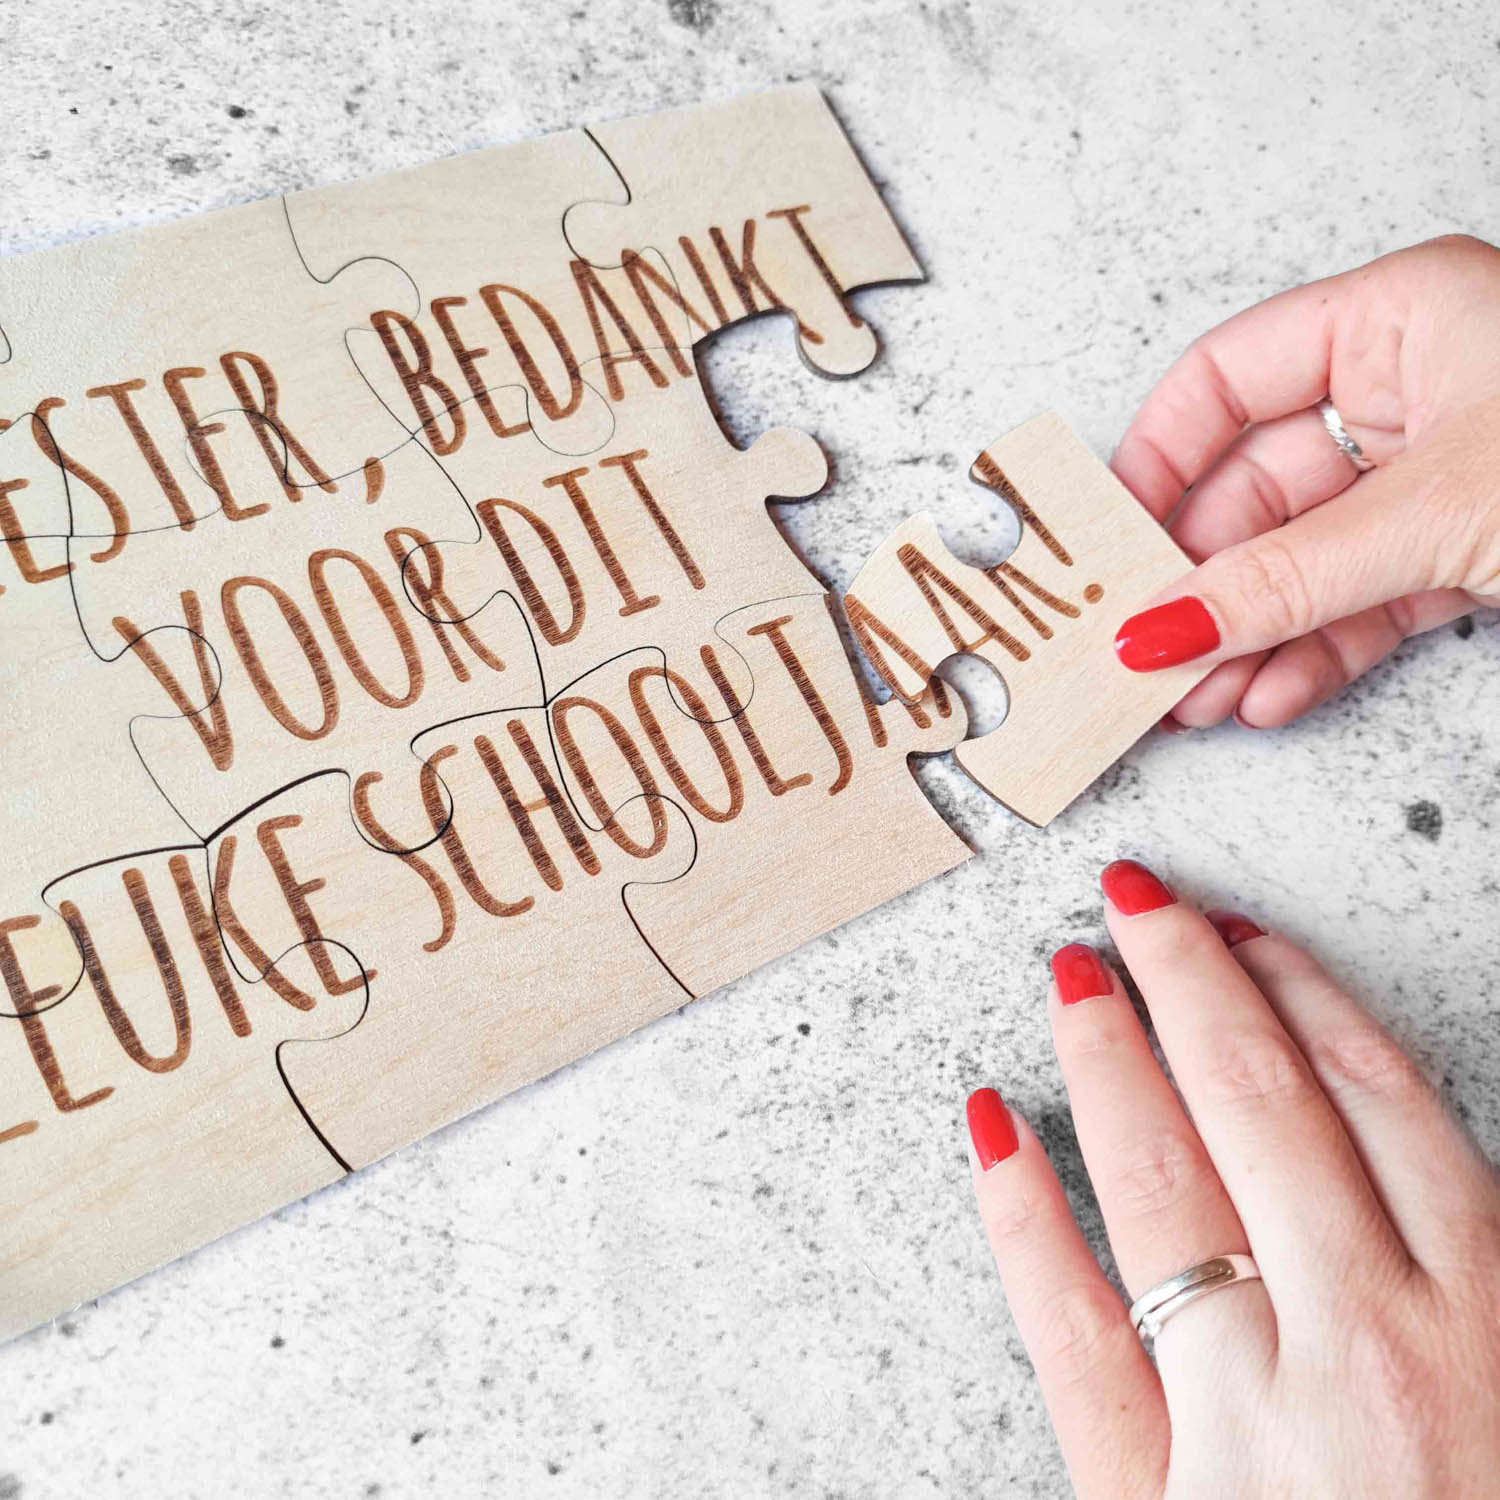 ESTER, BEDANKT
VOOR DIT
LEUKE SCHOOLJAAR!